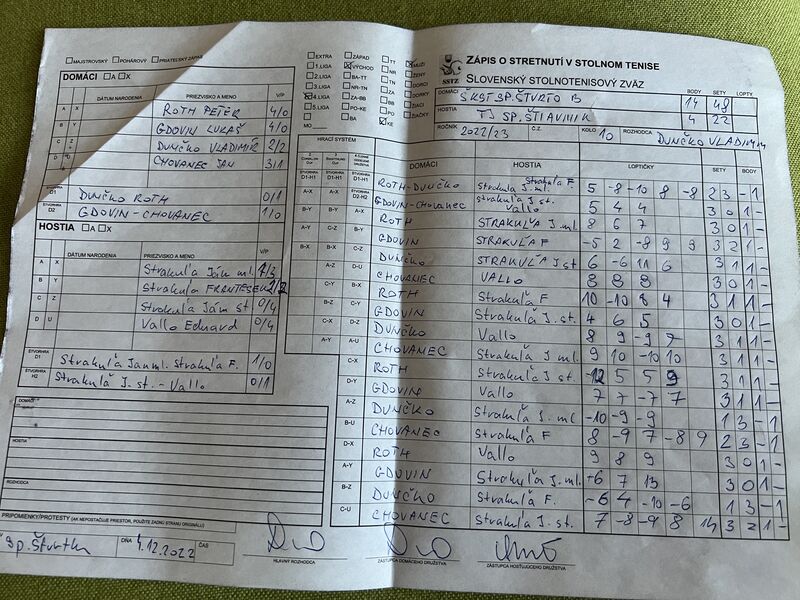 MAJSTROVSKÝ POHÁROVÝ PRIATEĽSKÝ ZÁPAS
EXTRA ZÁPAD TT MUŽI
1.LIGA VÝCHOD NR ŽENY
2.LIGA BA-TT TN DORCI
3.LIGA NR-TN ZA DORKY
4.LIGA ZA-BB BB ŽIACI
5.LIGA PO-KE PO ŽIAČKY
MO BA KE
SSTZ
ZÁPIS O STRETNUTÍ V STOLNOM TENISE
SLOVENSKÝ STOLNOTENISOVÝ ZVÄZ
BODY SETY LOPTY
DOMÁCI ŠKST SP. ŠTVRTOK B 14 48
HOSTIA TJ SP. ŠTIAVNIK 4 22
ROČNÍK 2022/23 Č.Z. KOLO 10 ROZHODCA DUNČKO VLADIMÍR
DOMÁCI A X
DÁTUM NARODENIA PRIEZVISKO A MENO V/P
A X ROTH PETER 4/0
B Y GDOVIN LUKÁŠ 4/0
C Z DUNČKO VLADIMÍR 2/2
D CHOVANEC JÁN 3/1
D1 DUNČKO ROTH 0/1
ŠTVORHRA D2 GDOVIN-CHOVANEC 1/0
HOSTIA A X
DÁTUM NARODENIA PRIEZVISKO A MENO V/P
A X Strakuľa Ján ml. 1/3
B Y Strakuľa FRANTIŠEK 2/2
C Z Strakuľa Ján st 0/4
D U Vallo Eduard 0/4
ŠTVORHRA D1 Strakuľa Ján ml. Strakuľa F. 1/0
ŠTVORHRA H2 Strakuľa J. st. - Vallo 0/1
DOMÁCI
HOSTIA
ROZHODCA
HRACÍ SYSTÉM
DOMÁCI HOSTIA LOPTIČKY SETY BODY
ROTH-DUNČKO Strakuľa J. ml Strakuľa F. 5 -8 -10 8 -8 2 3 - 1
GDOVIN-CHOVANEC Strakuľa J. st. Vallo 5 4 4 3 0 1 -
ROTH STRAKUĽA J. ml 8 6 7 3 0 1 -
GDOVIN STRAKUĽA F -5 2 -8 9 9 3 2 1 -
DUNČKO STRAKUĽA J. st 6 -6 11 6 3 1 1 -
CHOVANEC VALLO 8 8 8 3 0 1 -
ROTH Strakuľa F 10 -10 8 4 3 1 1 -
GDOVIN Strakuľa J. st. 4 6 5 3 0 1 -
DUNČKO Vallo 8 9 -9 7 3 1 1 -
CHOVANEC Strakuľa J. ml 9 10 -10 10 3 1 1 -
ROTH Strakuľa J. st. -12 5 5 9 3 1 1 -
GDOVIN Vallo 7 7 -7 7 3 1 1 -
DUNČKO Strakuľa J. ml -10 -9 -9
CHOVANEC Strakuľa F 8 -9 7 -8 9 2 3 - 1
ROTH Vallo 9 8 9 3 0 1 -
GDOVIN Strakuľa J. ml. 6 7 13 3 0 1 -
DUNČKO Strakuľa F. -6 4 -10 -6 1 3 - 1
CHOVANEC Strakuľa J. st. 7 -8 -9 8 14 3 2 1 -
PRIPOMIENKY/PROTESTY (AK NEPOSTAČUJE PRIESTOR, POUŽITE ZADNÚ STRANU ORIGINÁLU)
V Sp. Štvrtku DŇA 4.12.2022 ČAS
HLAVNÝ ROZHODCA ZÁSTUPCA DOMÁCEHO DRUŽSTVA ZÁSTUPCA HOSŤUJÚCEHO DRUŽSTVA